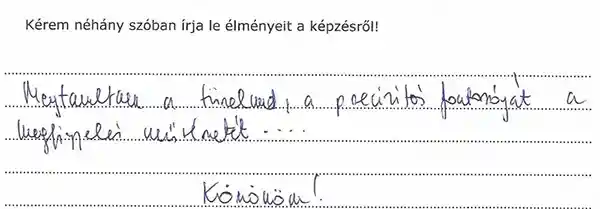 Kérem néhány szóban írja le élményeit a képzésről!
Megtanultam a türelmet, a precizitás fontosságát a
megfigyelés művészetét ....
Köszönöm!